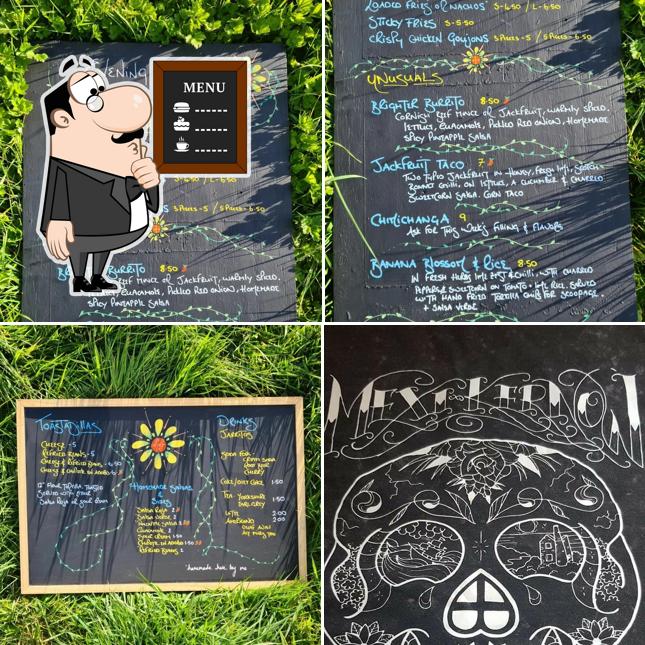 VENING
MENU
3-4.50 / L-6.50
3 PIECES - 5 / 5 PIECES - 6.50
BURRITO 8.50
BEEF MINCE OR JACKFRUIT, WARMLY SPICED.
GUACAMOLE, PICKLED RED ONION, HOMEMADE
SPICY PINEAPPLE SALSA
LOADED FRIES OR NACHOS S-4.50 / L-6.50
STICKY FRIES S-5.50
CRISPY CHICKEN GOUJONS 3 PIECES-5 / 5 PIECES-6.50
UNUSUALS
BRIGHTER BURRITO 8.50
CORNISH BEEF MINCE OR JACKFRUIT, WARMLY SPICED.
LETTUCE, GUACAMOLE, PICKLED RED ONION, HOMEMADE
SPICY PINEAPPLE SALSA
JACKFRUIT TACO 7
JACKFRUIT IN HONEY, FRESH LIME, SCOTCH-
BONNET CHILLI, ON LETTUCE, A CUCUMBER & CHARRED
SWEETCORN SALSA. CORN TACO
CHIMICHANGA 9
ASK FOR THIS WEEK'S FILLING & FLAVORS
BANANA BLOSSOM & RICE 8.50
IN FRESH HERBS, LIME ZEST & CHILLI, WITH CHARRED
PEPPERS & SWEETCORN ON TOMATO + LIME RICE. SERVED
WITH HAND FRIED TORTILLA CHIPS FOR SCOOPAGE.
+ SALSA VERDE
TOASTADILLAS
CHEESE - 5
REFRIED BEANS - 5
CHEESE & REFRIED BEANS - 6.50
CHEESE & CHIPOTLE IN ADOBO
12" FLOUR TORTILLA TOASTED
SERVED WITH
SALSA ROJA OR SOUR CREAM
HOMEMADE SALSAS
&
SIDES
SALSA ROJA 2
SALSA VERDE 2
PINEAPPLE SALSA
GUACAMOLE
SOUR CREAM 1.50
CHIPOTLE IN ADOBO 1.50
REFRIED BEANS 2
*homemade here by me
DRINKS
JARRITOS
SODA POP
CREAM SODA
ROOT BEER
CHERRY
COKE/DIET COKE 1.50
TEA - YORKSHIRE 1.50
EARL GREY
LATTE 2.00
AMERICANO 2.00
MEXI-LERDON